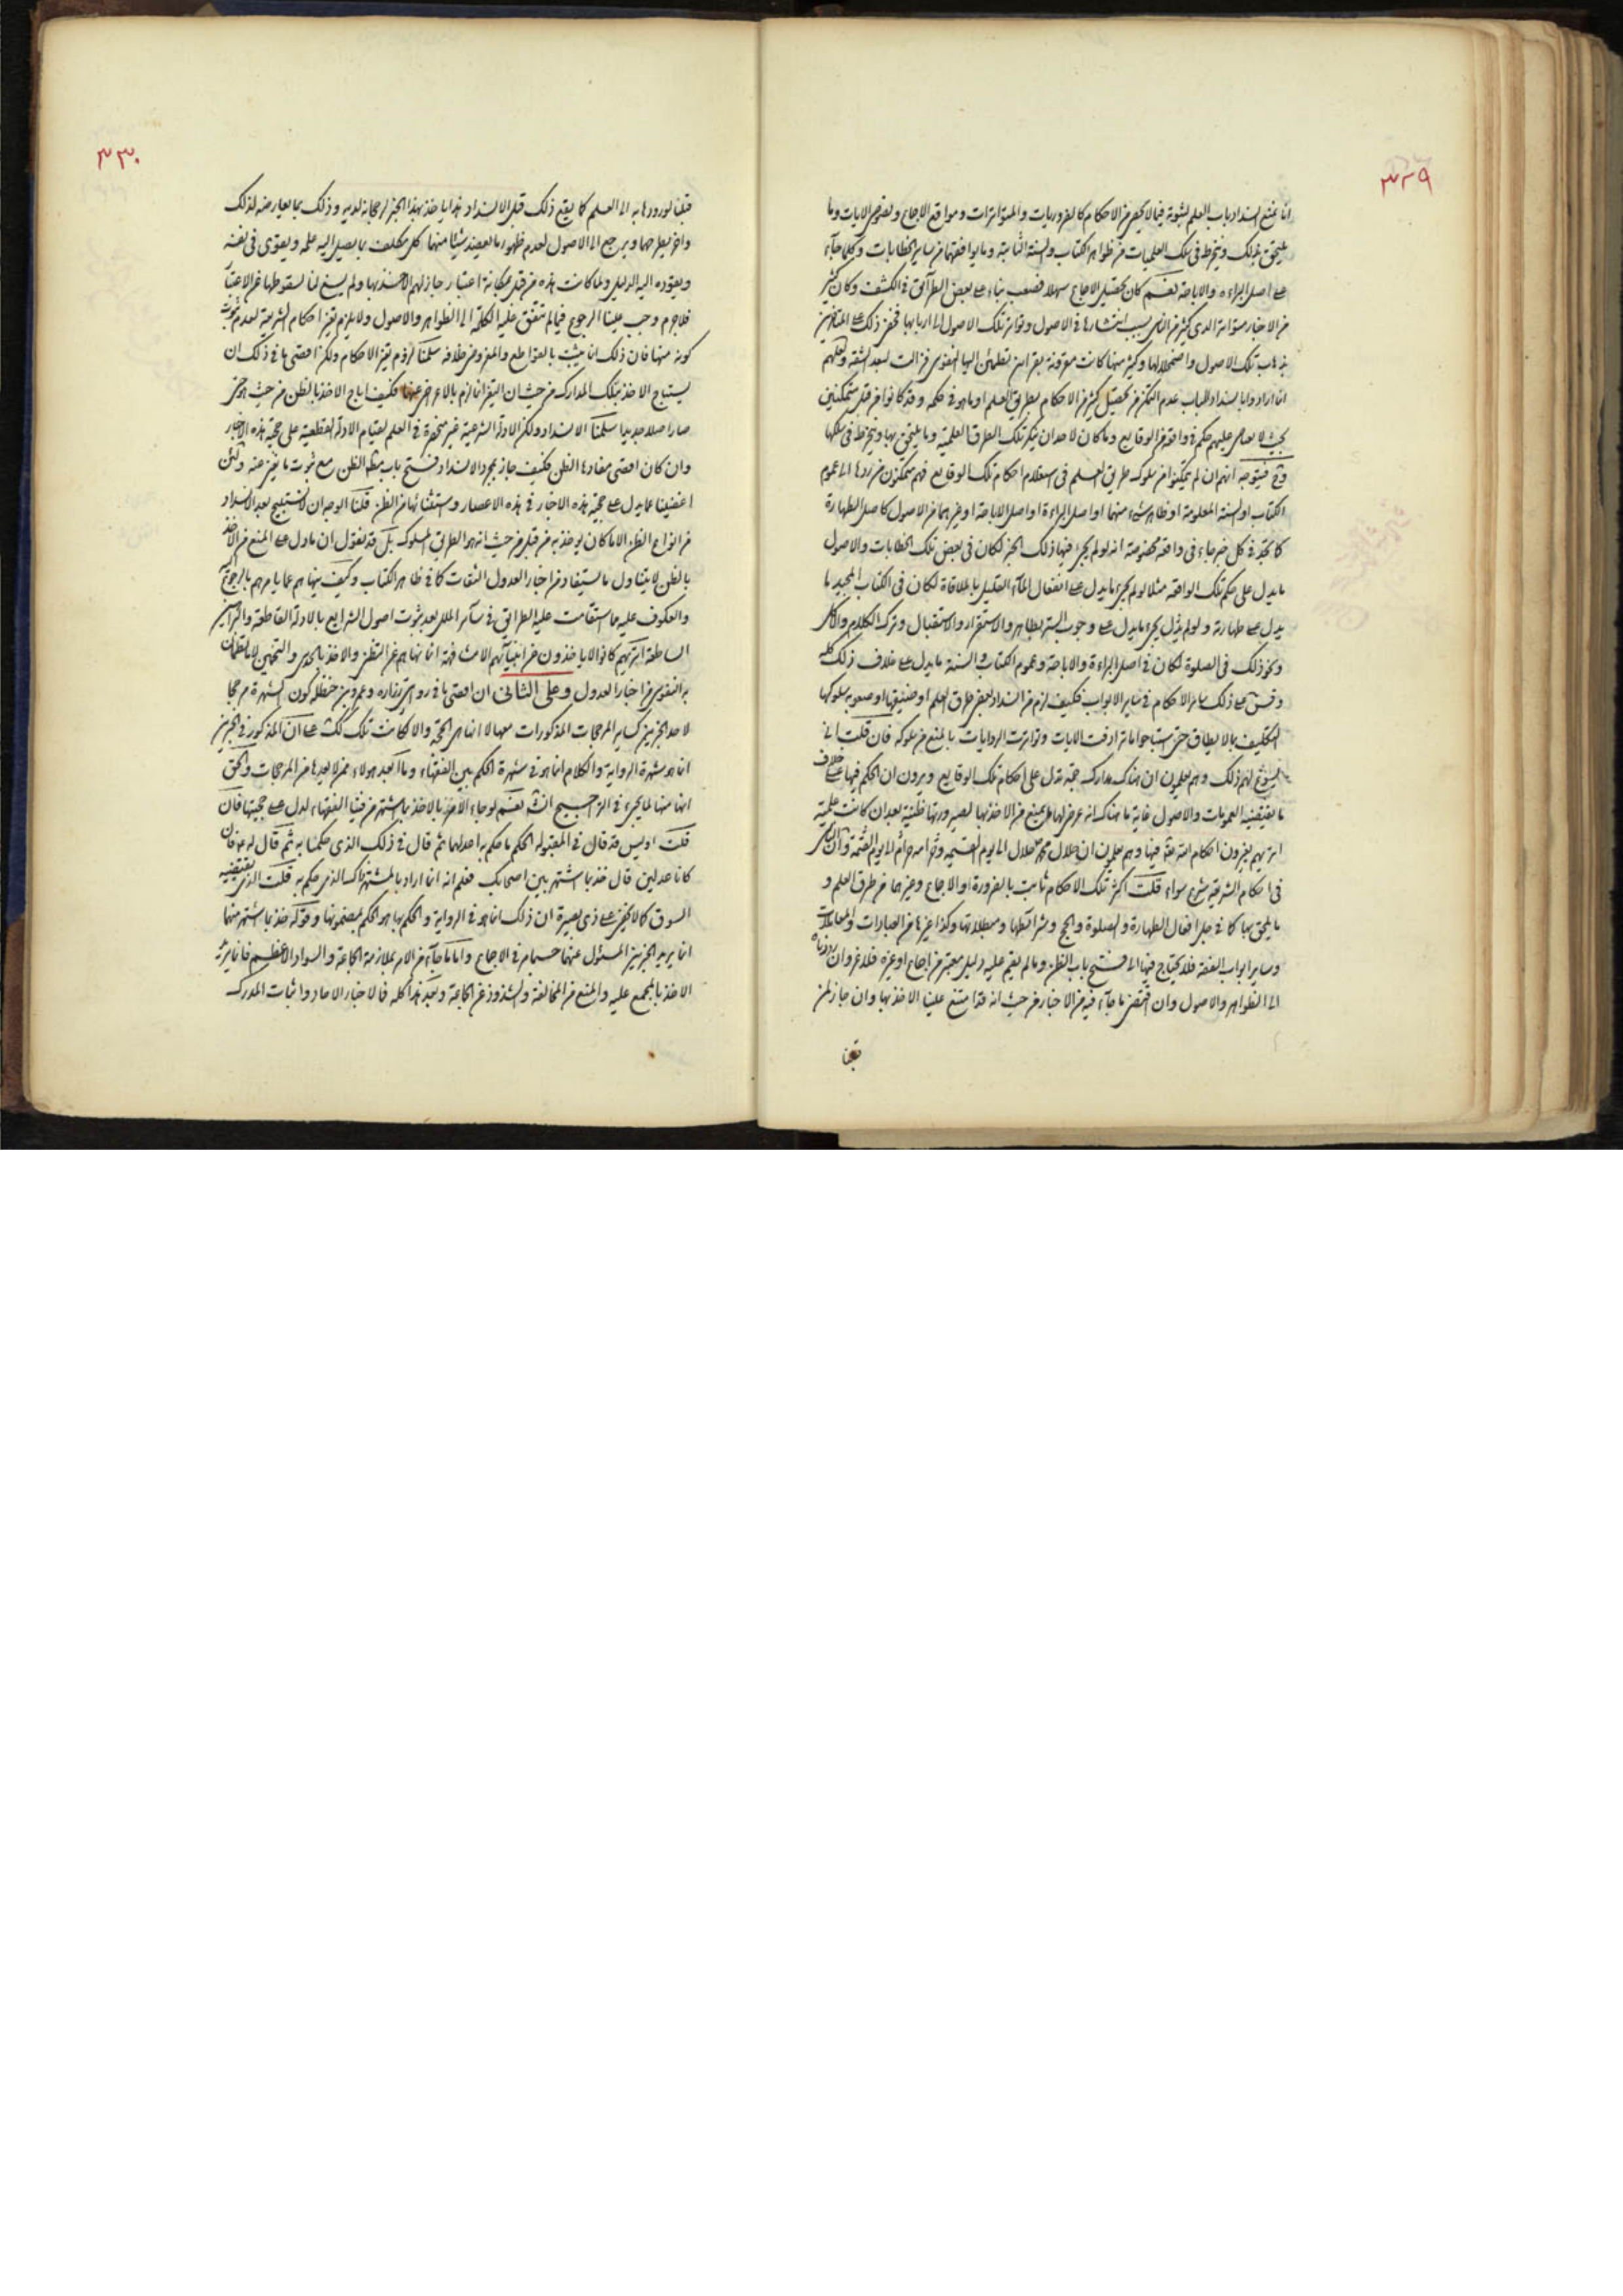 ٣٢٩
انا نمنع انسداد باب العلم لثبوته فيما لا يحصى من الاحكام كالضروريات والمتواترات ومواقع الاجماع ونصوص الايات وما
يلحق بذلك وينخرط في سلك العلميات من ظواهر الكتاب والسنة الثابتة وما يوافقهما من ساير الخطابات وكلما جآء
على اصل البراءة والاباحة نعم كان تحصيل الاجماع سهلا فصعب بناء على بعض الطرآئق في الكشف وكان كثير
من الاخبار متواترة لدى كثير من الناس بسبب انتشارها في الاصول وتواتر تلك الاصول الى اربابها فخفى ذلك على المتاخرين
بذهاب تلك الاصول واضمحلالها وكثير منها كانت مقرونة بقراين تطمئن اليها النفوس فزالت لبعد الشقه
ان اراد وا بانسداد الباب عدم التمكن من تحصيل كثير من الاحكام بطريق العلم او ما هو في حكمه وقد كانوا من قبل متمكنين
بحيث لا يعاص عليهم حكم في واقعة من الوقايع وما كان لاحد ان ينكر تلك الطرق العلمية وما يلحق بها وينخرط في سلكها
فيتوجه انهم ان لم يتمكنوا من سلوك طريق العلم في استعلام احكام تلك الوقايع فهم متمكنون من ردها الى عموم
الكتاب او السنة المعلومة او ظاهر شيء منهما او اصل البراءة او اصل الاباحة او غيرهما من الاصول كاصل الطهارة
كما تجد في كل خبر جاء في واقعة مخصوصة انه لو لم يجئ فيها ذلك الخبر لكان في بعض تلك الخطابات والاصول
ما يدل على حكم تلك الواقعة مثلا لو لم يجئ ما يدل على انفعال المآء القليل بالملاقاة لكان في الكتاب المجيد ما
يدل على طهارته ولو لم يجئ ما يدل على وجوب الستر بطاهر والاستقرار والاستقبال وترك الكلام والاكل
ونحو ذلك في الصلوة لكان في اصل البراءة والاباحة وعموم الكتاب والسنة ما يدل على خلاف ذلك كله
وقس على ذلك ساير الاحكام في ساير الابواب فكيف لزم من انسداد بعض طرق العلم او ضيقها او صعوبة سلوكها
التكليف بما لا يطاق حتى استباحوا ما ترادفت الايات وتواترت الروايات بالمنع من سلوكه فان قلت انى
يسوغ لهم ذلك وهم يعلمون ان هناك مدارك جمة تدل على احكام تلك الوقايع ويرون ان الحكم فيها على خلاف
ما يقتضيه العمومات والاصول غاية ما هناك انه عرض لها ما يمنع من الاخذ بها لصيرورتها ظنية بعد ان كانت علمية
اتريهم يغيرون احكام الشريعة فيها وهم يعلمون ان حلال محمد حلال الى يوم القيمه وحرامه حرام الى يوم القيمة وان الناس
في احكام الشريعة شرع سواء قلت اكثر تلك الاحكام ثابت بالضرورة او الاجماع وغيرهما من طرق العلم و
ما يلحق بها كما في جل افعال الطهارة والصلوة والحج وشرائطها ومبطلاتها وكذا غيرها من العبادات والمعاملات
وساير ابواب الفقه فلا يحتاج فيها الى فتح باب الظن وما لم يقم عليه دليل معتبر من اجماع او غيره فلا غرو ان رددناه
الى الظواهر والاصول وان اقتضى ما جآء فيه من الاخبار من حيث انه قد امتنع علينا الاخذ بها وان جاز لمن
قبلنا
٣٣٠
قبلنا لورودها به الى العلم كما يقع ذلك قبل الانسداد هذا ياخذ بهذا الخبر لرجحانه لديه وذلك بما يعارضه لذلك
واخر يطرحهما ويرجع الى الاصول لعدم ظهور ما يعضد شيئا منهما كل مكلف بما يصل اليه علمه ويقوى في نفسه
ويقوده اليه الدليل ولما كانت هذه من قبل بمكانة اعتبار جاز لهم الاخذ بها ولم يسغ لنا لسقوطها عن الاعتبار
فلا جرم وجب علينا الرجوع فيما لم تتفق عليه الكلمة الى الظواهر والاصول ولا يلزم تغير احكام الشريعة لعدم ثبوت
كونه منها فان ذلك انما يثبت بالقواطع والمفروض خلافه سلمنا لزوم تغير الاحكام ولكن اقصى ما في ذلك ان
يستباح الاخذ بتلك المدارك من حيث ان التغير انما لزم بالاعراض عنها فكيف اباح الاخذ بالظن من حيث هو حتى
صار اصلا جديدا سلمنا الانسداد ولكن الادلة الشرعية غير منحصرة في العلم لقيام الادلة القطعية على حجية هذه الاخبار
وان كان اقصى مفادها الظن فكيف جاز بمجرد الانسداد فتح باب مظنة الظن مع ثبوت ما يغنى عنه ولئن
اغضينا عما يدل على حجية هذه الاخبار في هذه الاعصار واستثنائها من الظن قلنا الوجه ان لا نستبيح بعد الانسداد
من انواع الظن الا ما كان يوخذ به من قبل من حيث انه هو الطريق المسلوك بل قد نقول ان ما دل على المنع من الاخذ
بالظن لا يتناول ما يستفاد من اخبار العدول الثقات كما في ظاهر الكتاب وكيف ينهاهم عما يامرهم بالرجوع اليه
والعكوف عليه مما استقامت عليه الطرائق في سآير الملل بعد ثبوت اصول الشرايع بالادلة القاطعة والبراهين
الساطعة اتريهم كانوا لا ياخذون من انبيآئهم الا مشافهة انما نهاهم عن التظنى والاخذ بالحدس والتخمين لا ما تطمئن
به النفوس من اخبار العدول وعلى الثانى ان اقصى ما في روايتى زرارة وعمر بن حنظلة كون الشهرة مرجحا
لاحد الخبرين كساير المرجحات المذكورات معها لا انها هي الحجة والا لكانت تلك كذلك على ان المذكور في الخبرين
انما هو شهرة الرواية والكلام انما هو في شهرة الحكم بين الفقهاء وما ابعد هولاء ممن لا يعدها من المرجحات والحق
انها منها لما يجئ في التراجيح انش نعم لو جاء الامر بالاخذ بما اشتهر من فتيا الفقهاء لدل على حجيتها فان
قلت اوليس قد قال في المقبولة الحكم ما حكم به اعدلهما ثم قال في ذلك الذى حكما به ثم قال له فان
كانا عدلين قال خذ بما اشتهر بين اصحابك فعلم انه انما اراد بالمشتهر ذاك الذى حكم به قلت الذى يقتضيه
السوق كما لا يخفى على ذى بصيرة ان ذلك انما هو في الرواية والحكم بها هو الحكم بمضمونها وقوله خذ بما اشتهر منهما
انما يريد الخبرين المسئول عنهما حسبما مر في الاجماع واما ما جآء من الامر بملازمة الجماعة والسواد الاعظم فانما يريد
الاخذ بالمجمع عليه والمنع من المخالفة والشذوذ عن الجماعة وبعد هذا كله فالاخبار الاحاد واثبات المدرك